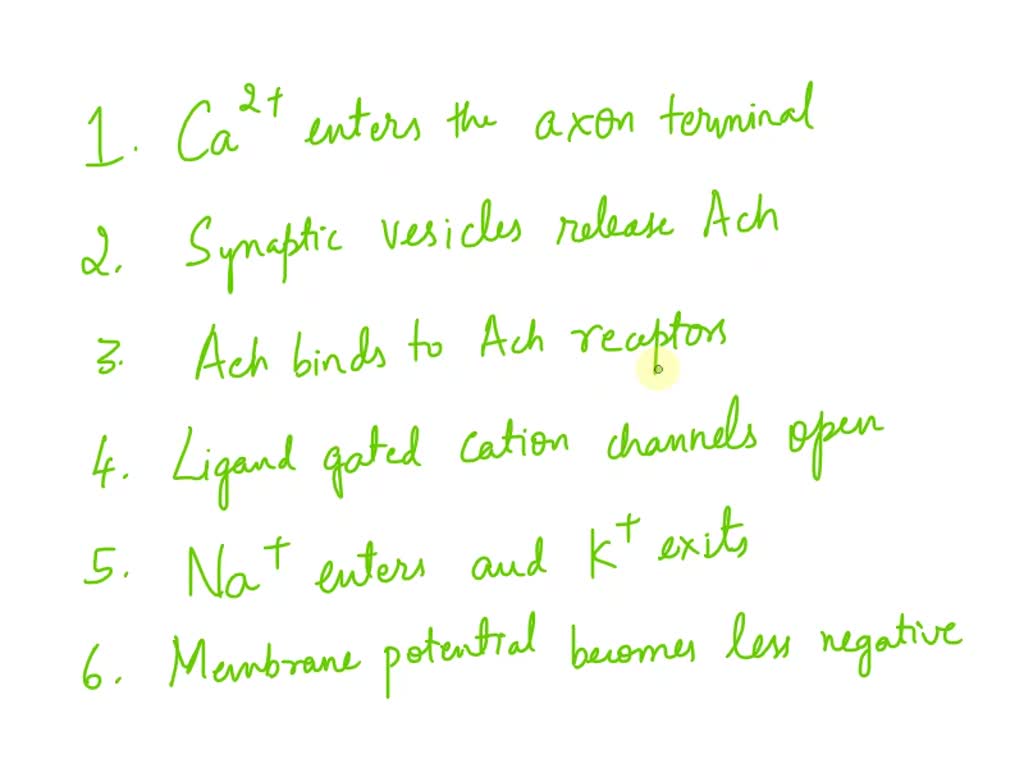 1. Ca²⁺ enters the axon terminal
2. Synaptic vesicles release Ach
3. Ach binds to Ach receptors
4. Ligand gated cation channels open
5. Na⁺ enters and K⁺ exits
6. Membrane potential becomes less negative